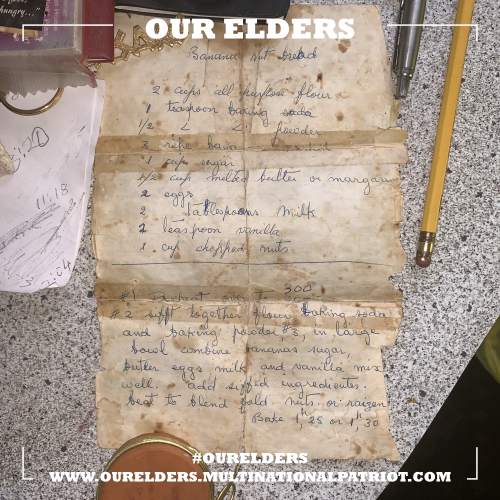 OUR ELDERS
hungry..."
Banana Nut bread
2 cups all purpose flour
1 teaspoon baking soda
1/2 " " powder
3 ripe
1 cup sugar
1/2 cup melted butter or margarin
2 eggs
2 Tablespoons Milk
2 teaspoon vanilla
1 cup chopped nuts
300
#1 Preheat oven to
#2 sifft together flour baking soda
and baking powder #3, in large
bowl combine bananas sugar,
butter eggs milk and vanilla mix
well. add sifted ingredientes.
beat to blend fold nuts or raizen
Bake 1h, 25 or 1h, 30
11.18
#OURELDERS
WWW.OURELDERS.MULTINATIONALPATRIOT.COM